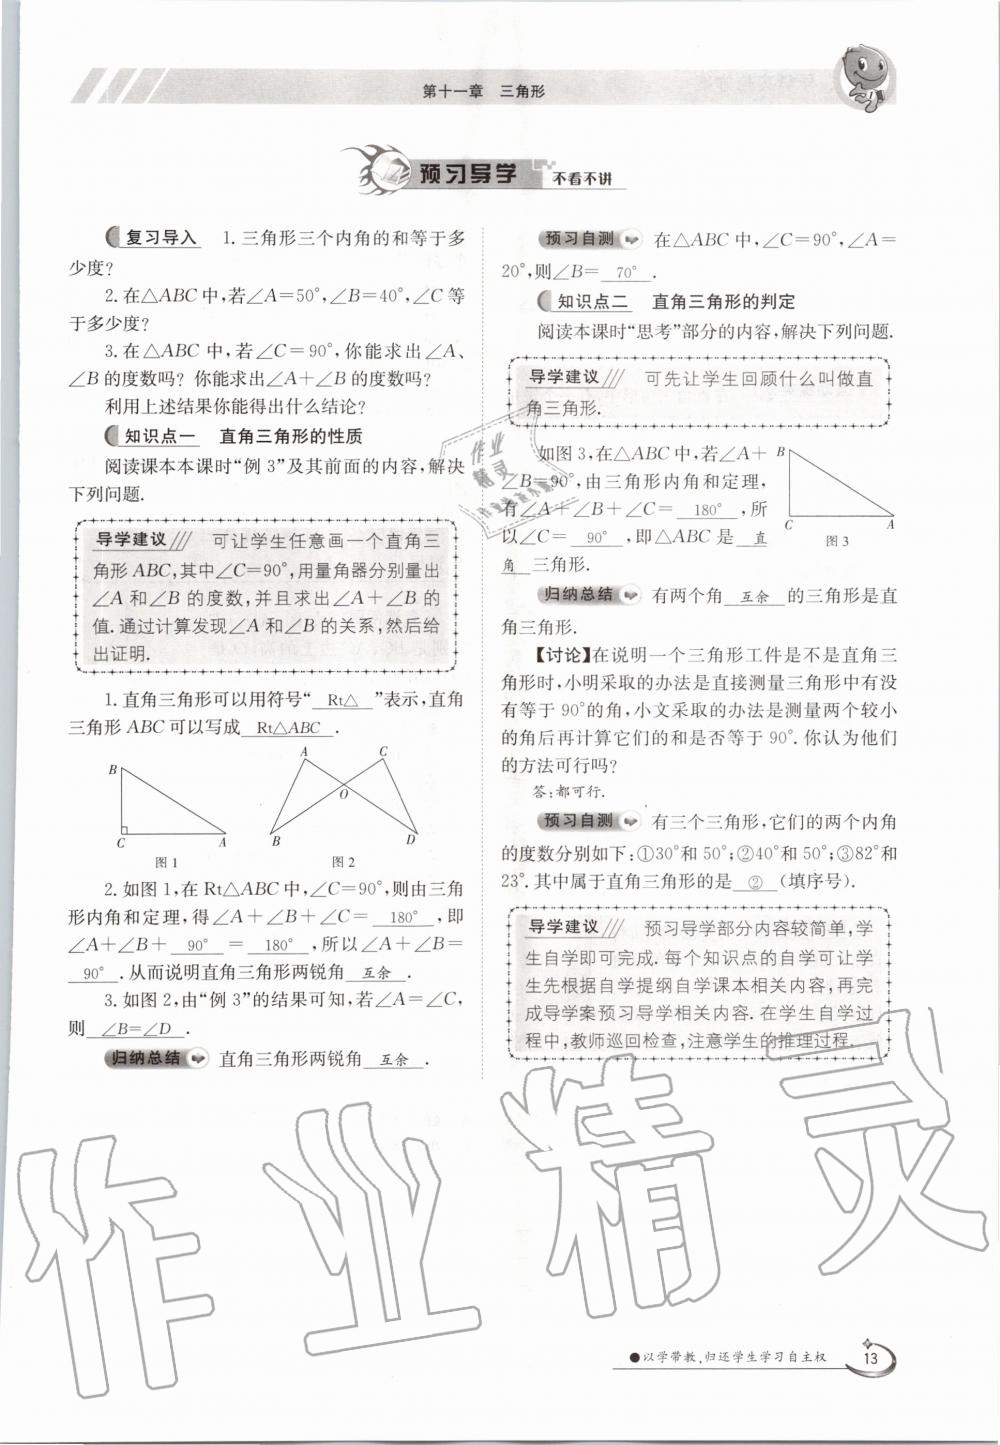 第十一章 三角形
预习导学 不看不讲
复习导入 1.三角形三个内角的和等于多
少度?
2.在△ABC中,若∠A=50°,∠B=40°,∠C等
于多少度?
3.在△ABC中,若∠C=90°,你能求出∠A、
∠B的度数吗? 你能求出∠A+∠B的度数吗?
利用上述结果你能得出什么结论?
知识点一 直角三角形的性质
阅读课本本课时“例3”及其前面的内容,解决
下列问题.
导学建议 可让学生任意画一个直角三
角形ABC,其中∠C=90°,用量角器分别量出
∠A和∠B的度数,并且求出∠A+∠B的
值.通过计算发现∠A和∠B的关系,然后给
出证明.
1.直角三角形可以用符号“ Rt△ ”表示,直角
三角形ABC可以写成 Rt△ABC .
B C A
图1
A C O B D
图2
2.如图1,在Rt△ABC中,∠C=90°,则由三角
形内角和定理,得∠A+∠B+∠C= 180° ,即
∠A+∠B+ 90° = 180° ,所以∠A+∠B=
90° .从而说明直角三角形两锐角 互余 .
3.如图2,由“例3”的结果可知,若∠A=∠C,
则 ∠B=∠D .
归纳总结 直角三角形两锐角 互余 .
预习自测 在△ABC中,∠C=90°,∠A=
20°,则∠B= 70° .
知识点二 直角三角形的判定
阅读本课时“思考”部分的内容,解决下列问题.
导学建议 可先让学生回顾什么叫做直
角三角形.
如图3,在△ABC中,若∠A+
∠B=90°,由三角形内角和定理,
有∠A+∠B+∠C= 180° ,所
以∠C= 90° ,即△ABC是 直
角 三角形.
B C A
图3
归纳总结 有两个角 互余 的三角形是直
角三角形.
【讨论】在说明一个三角形工件是不是直角三
角形时,小明采取的办法是直接测量三角形中有没
有等于90°的角,小文采取的办法是测量两个较小
的角后再计算它们的和是否等于90°.你认为他们
的方法可行吗?
答:都可行.
预习自测 有三个三角形,它们的两个内角
的度数分别如下:①30°和50°;②40°和50°;③82°和
23°.其中属于直角三角形的是 ② (填序号).
导学建议 预习导学部分内容较简单,学
生自学即可完成.每个知识点的自学可让学
生先根据自学提纲自学课本相关内容,再完
成导学案预习导学相关内容.在学生自学过
程中,教师巡回检查,注意学生的推理过程.
作业精灵
●以学带教,归还学生学习自主权 13